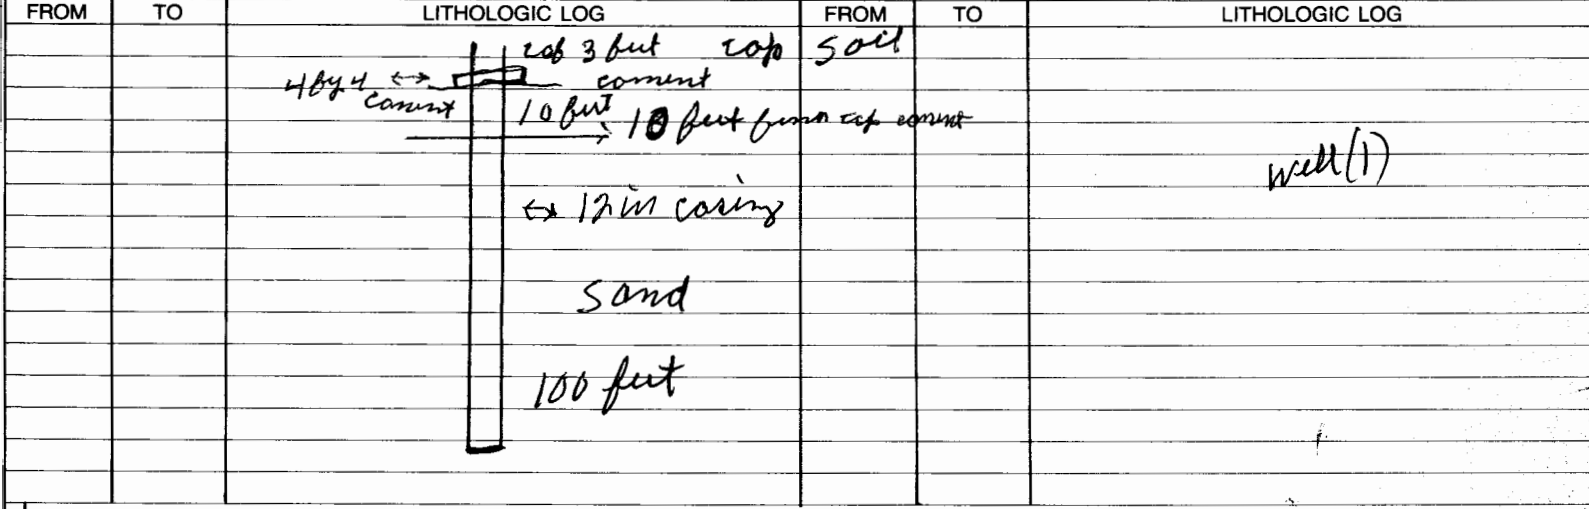 FROM TO LITHOLOGIC LOG FROM TO LITHOLOGIC LOG
top 3 feet top soil
4 by 4 cement
cement
10 feet 10 feet from top cement
well (1)
12 in casing
sand
100 feet